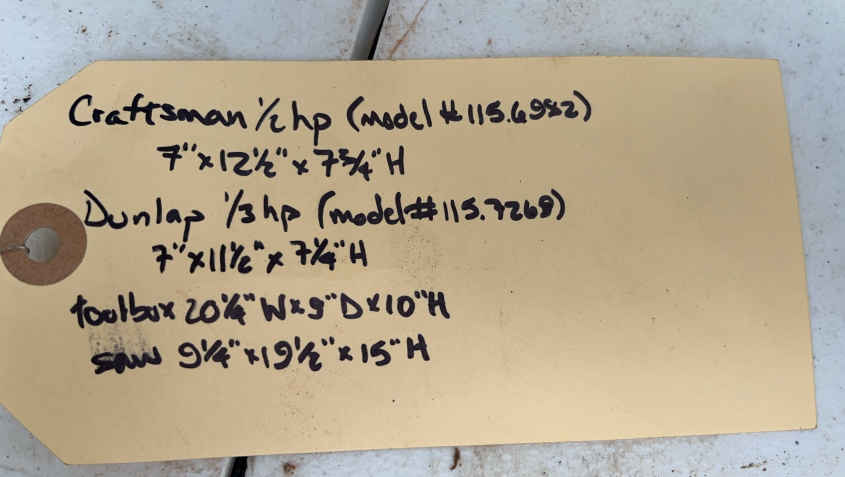 Craftsman 1/2 hp (model # 115.6982)
7" x 12 1/2" x 7 3/4" H
Dunlap 1/3 hp (model# 115.7268)
7" x 11 1/2" x 7 1/4" H
toolbox 20 1/4" W x 9" D x 10" H
saw 9 1/4" x 19 1/2" x 15" H